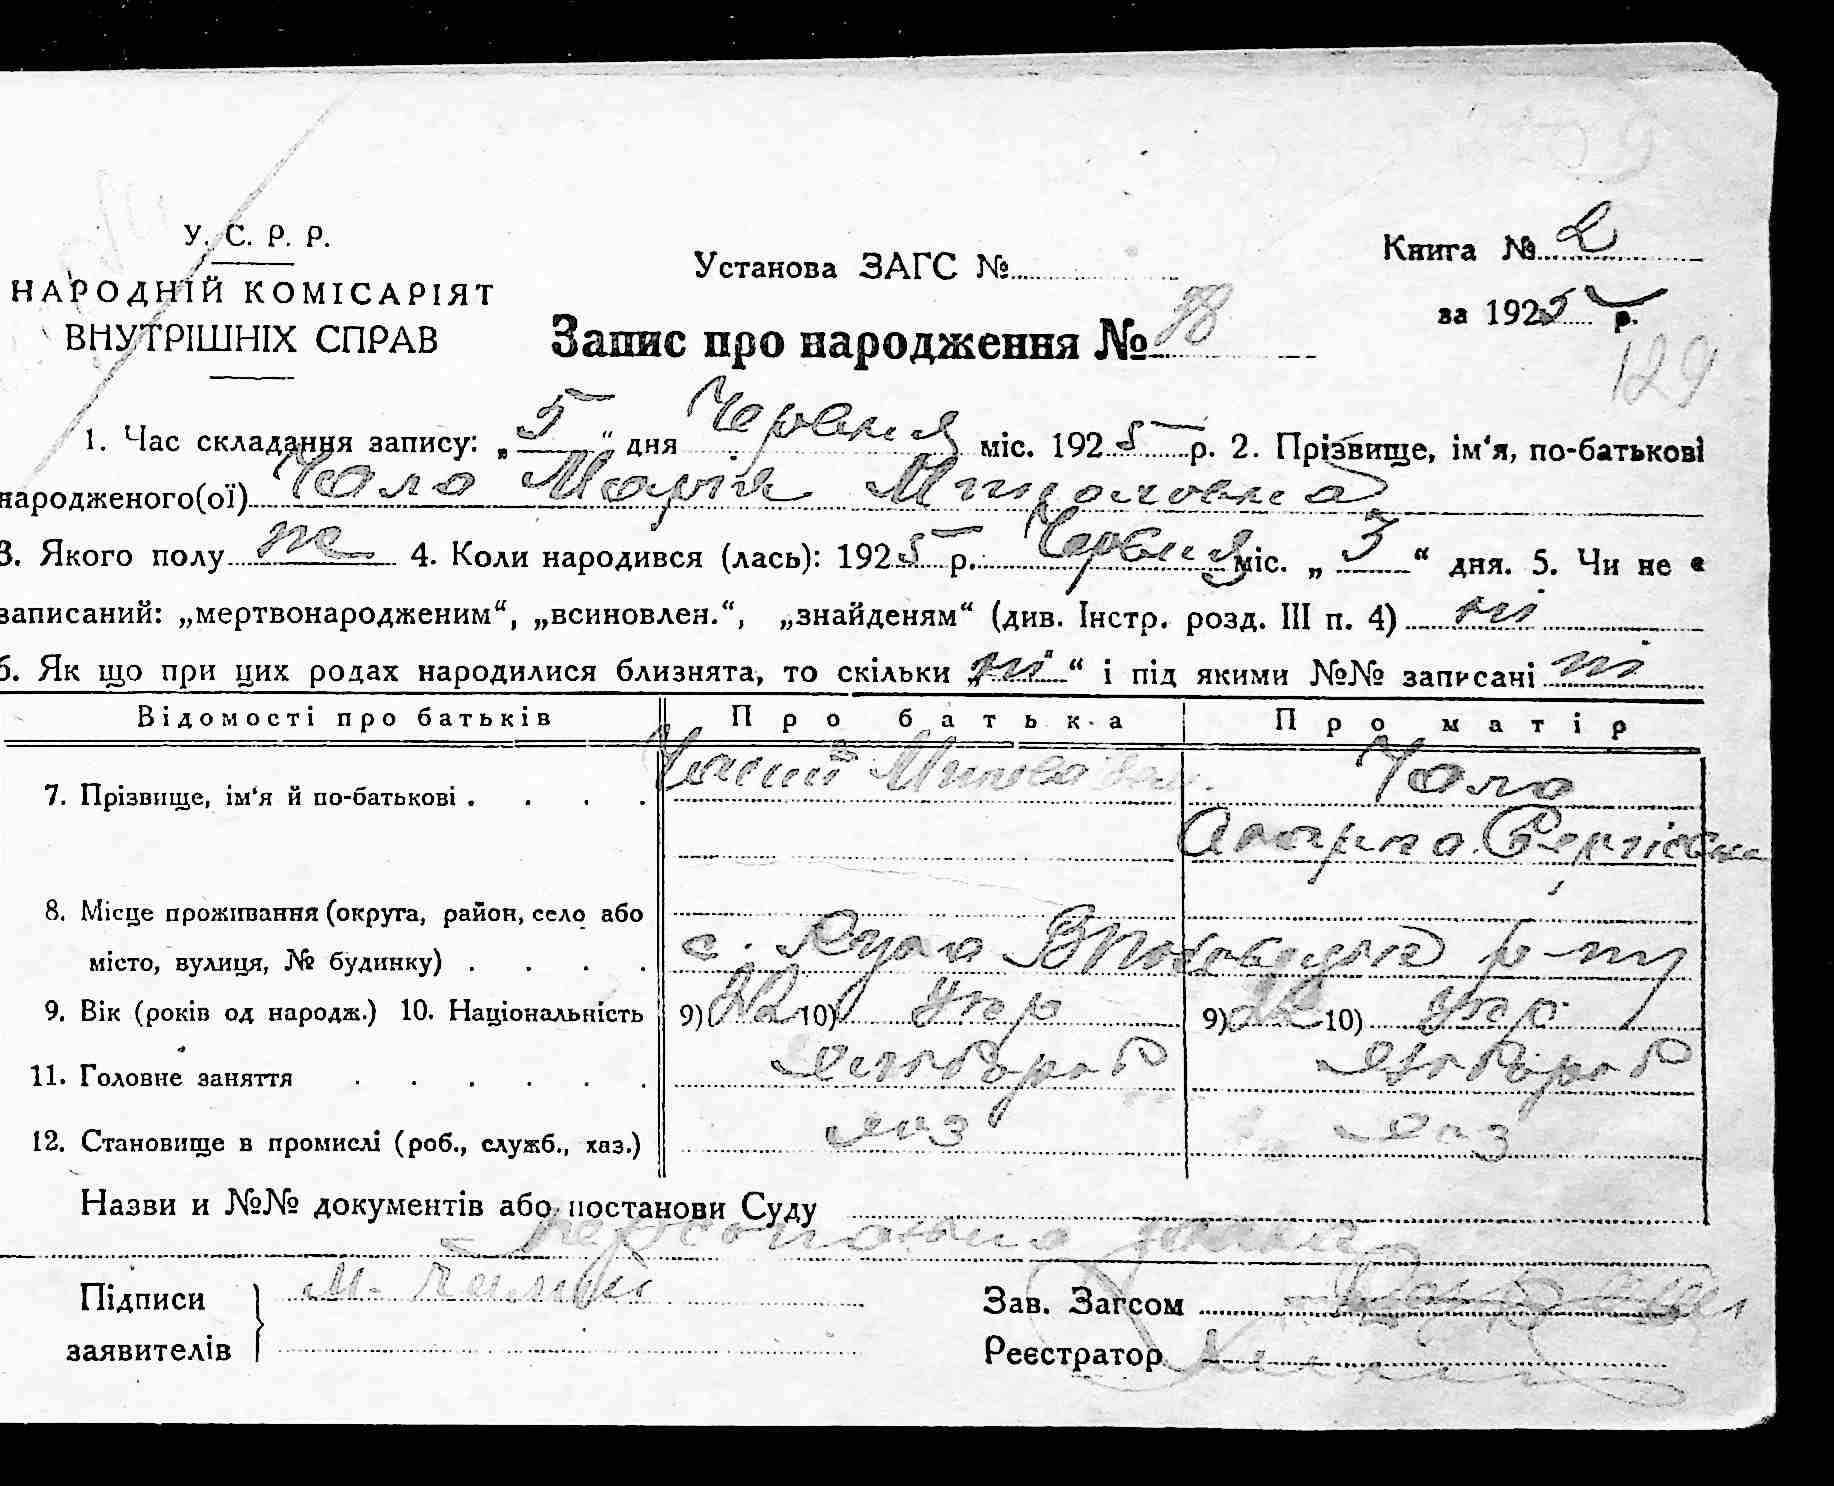 У. С. Р. Р.
НАРОДНІЙ КОМІСАРІЯТ
ВНУТРІШНІХ СПРАВ
Установа ЗАГС №
Книга № 2
за 1925 р.
Запис про народження № 78
129
1. Час складання запису: „5“ дня Червня міс. 1925 р. 2. Прізвище, ім‘я, по-батькові
народженого(ої) Чало Марія
3. Якого полу же 4. Коли народився (лась): 1925 р. Червня міс. „3“ дня. 5. Чи не
записаний: „мертвонародженим“, „всиновлен.“, „знайденям“ (див. Інстр. розд. III п. 4) ні
6. Як що при цих родах народилися близнята, то скільки „ні“ і під якими №№ записані ні
Відомості про батьків Про батька Про матір
7. Прізвище, ім‘я й по-батькові . . . . Чало
Сергієвна
8. Місце проживання (округа, район, село або
місто, вулиця, № будинку) . . . . с. р-ну
9. Вік (років од народж.) 10. Національність 9) 22 10) Укр 9) 22 10) Укр
11. Головне заняття . . . . . . Хлібороб Хлібороб
12. Становище в промислі (роб., служб., хаз.) хаз хаз
Назви и №№ документів або постанови Суду
Підписи
заявителів
М.
Зав. Загсом
Реєстратор